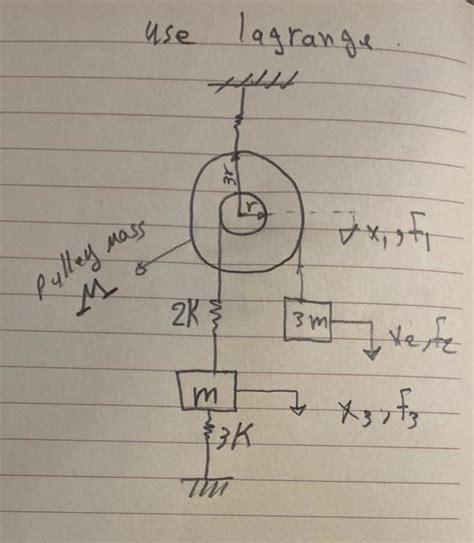 use lagrange.
3r
r
x₁, f₁
pulley mass
M
2K
3m
x₂, f₂
m
x₃, f₃
3K